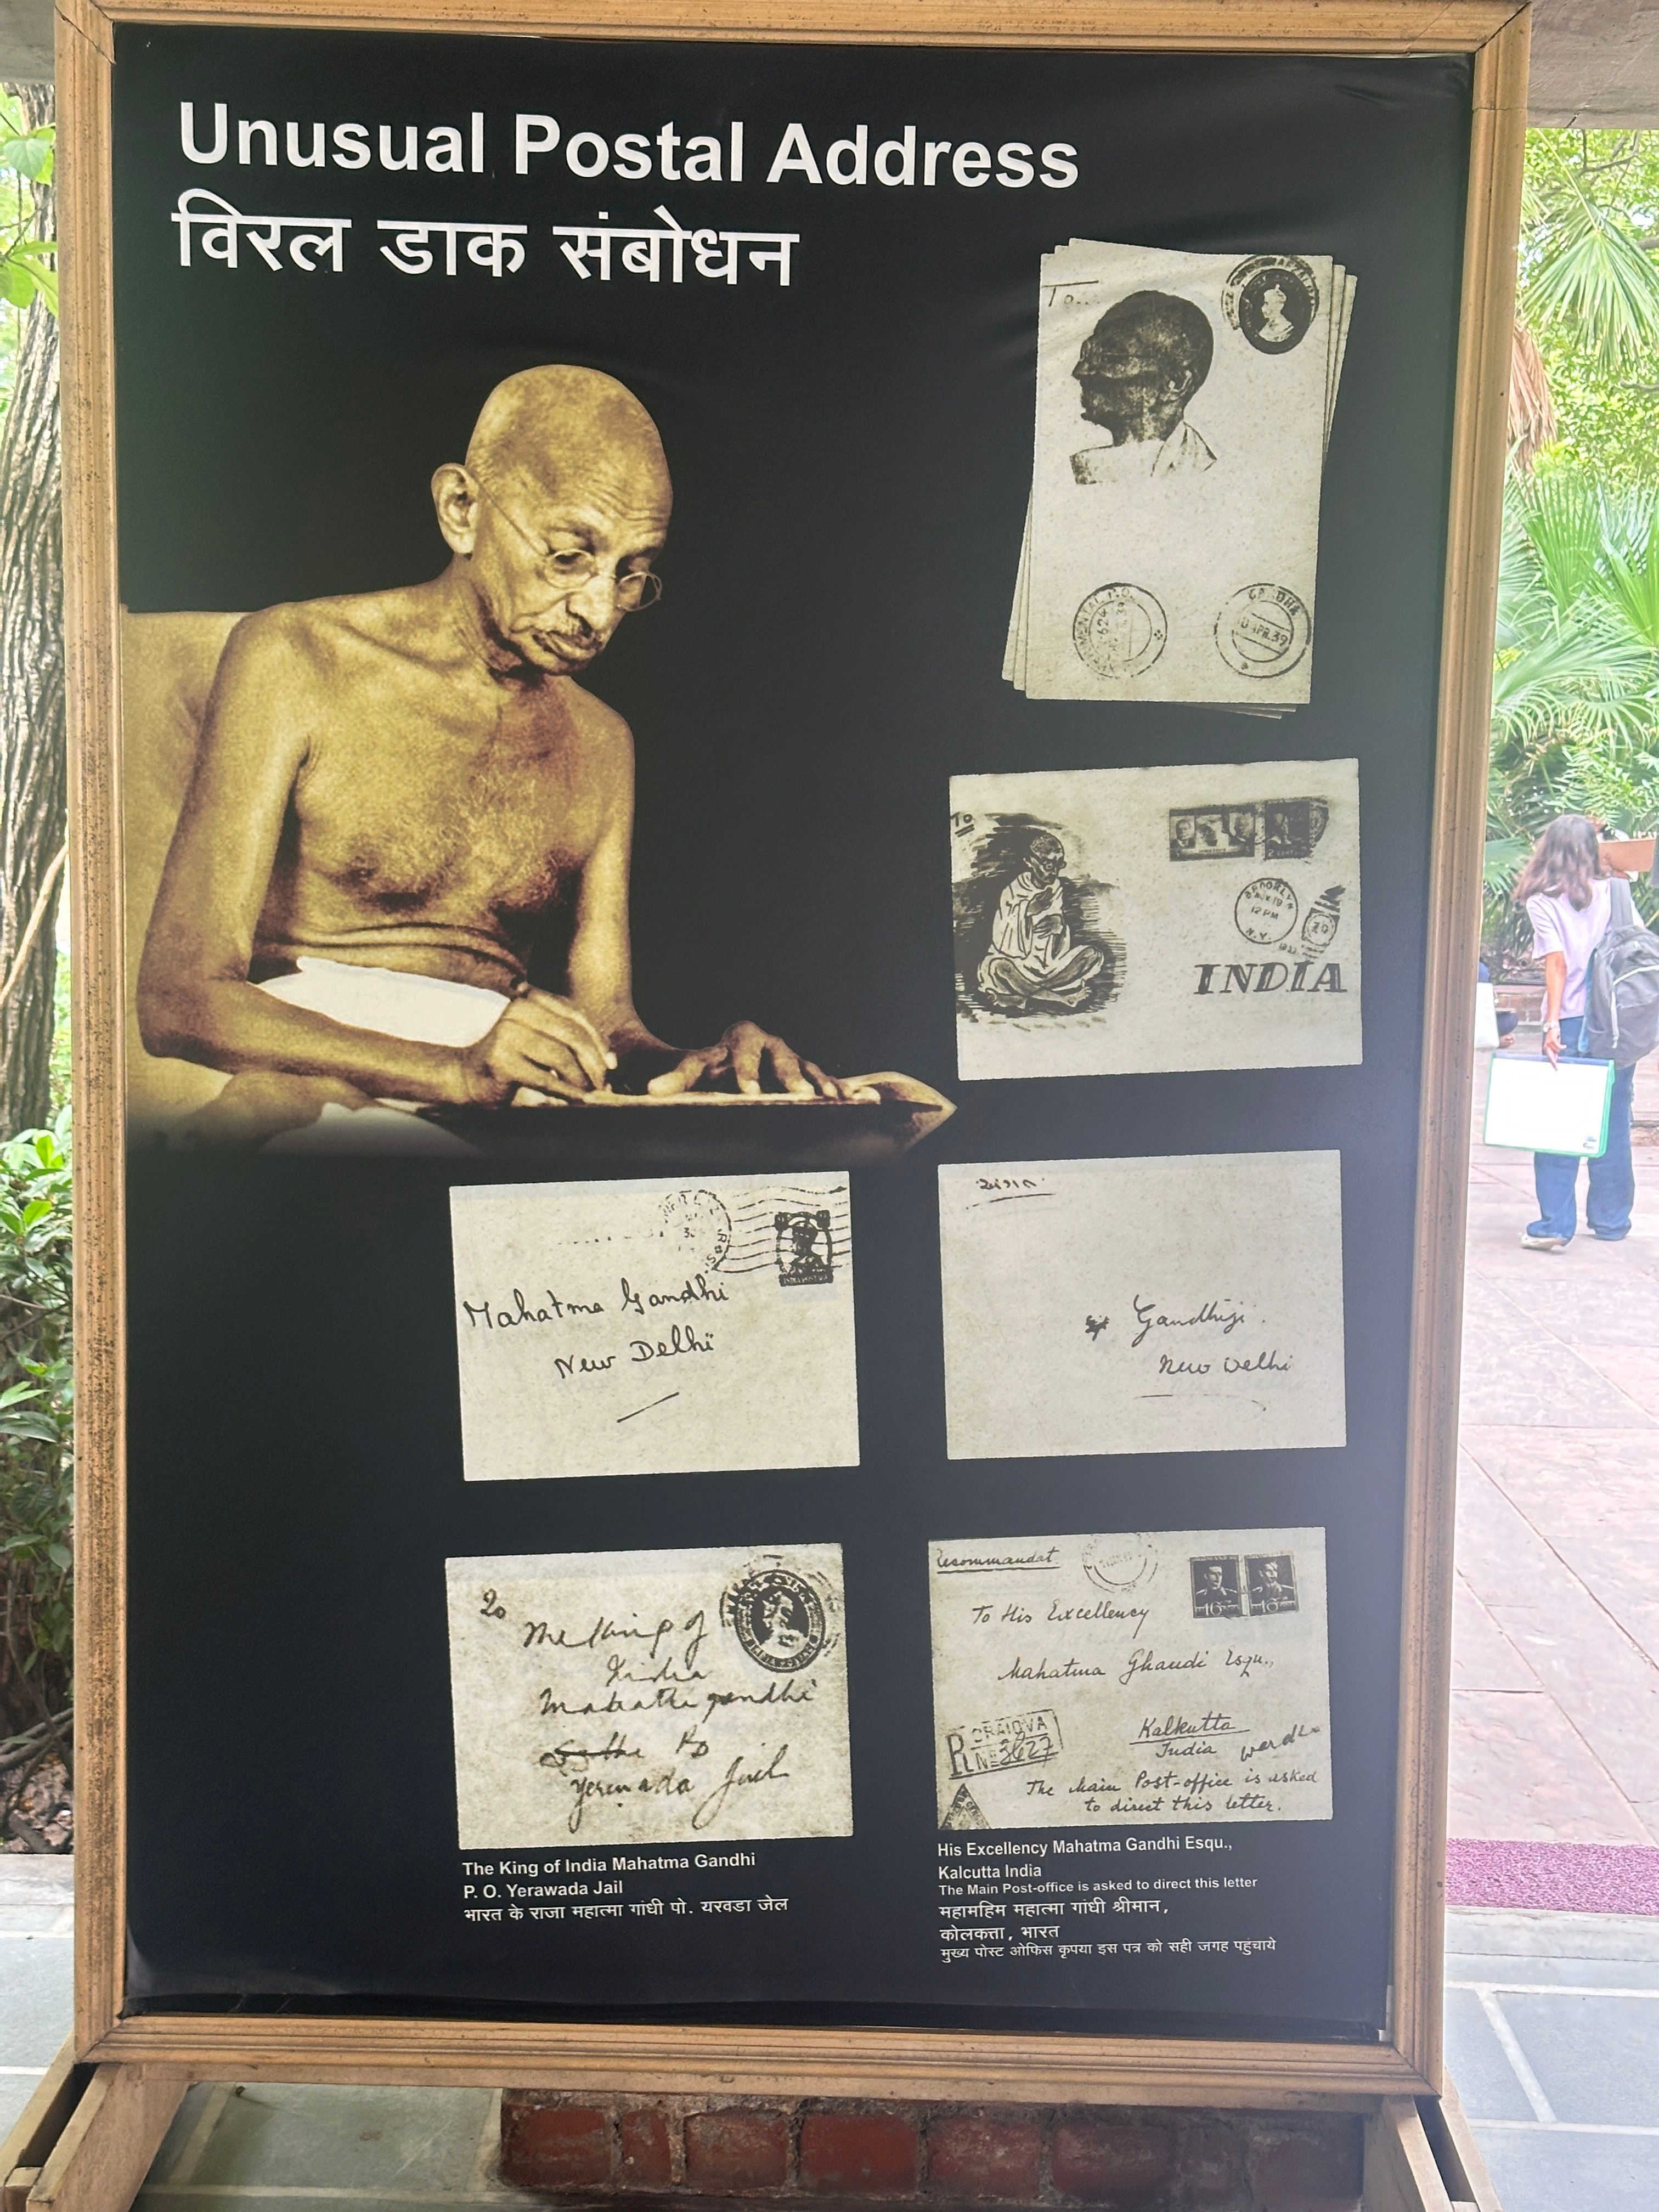 Unusual Postal Address
विरल डाक संबोधन
To
APR.39
To
BROOKLYN
12 PM
N.Y.
INDIA
Mahatma Gandhi
New Delhi
Gandhiji.
New Delhi
To
The King of
India
Mahatma gandhi
PO
Yerwada Jail
Recommandat
16
To His Excellency
Mahatma Ghandi Esqu.,
CRAIOVA
R No 3627
Kalkutta
India
The Main Post-office is asked
to direct this letter.
The King of India Mahatma Gandhi
P. O. Yerawada Jail
भारत के राजा महात्मा गांधी पो. यरवडा जेल
His Excellency Mahatma Gandhi Esqu.,
Kalcutta India
The Main Post-office is asked to direct this letter
महामहिम महात्मा गांधी श्रीमान,
कोलकत्ता, भारत
मुख्य पोस्ट ओफिस कृपया इस पत्र को सही जगह पहुंचाये